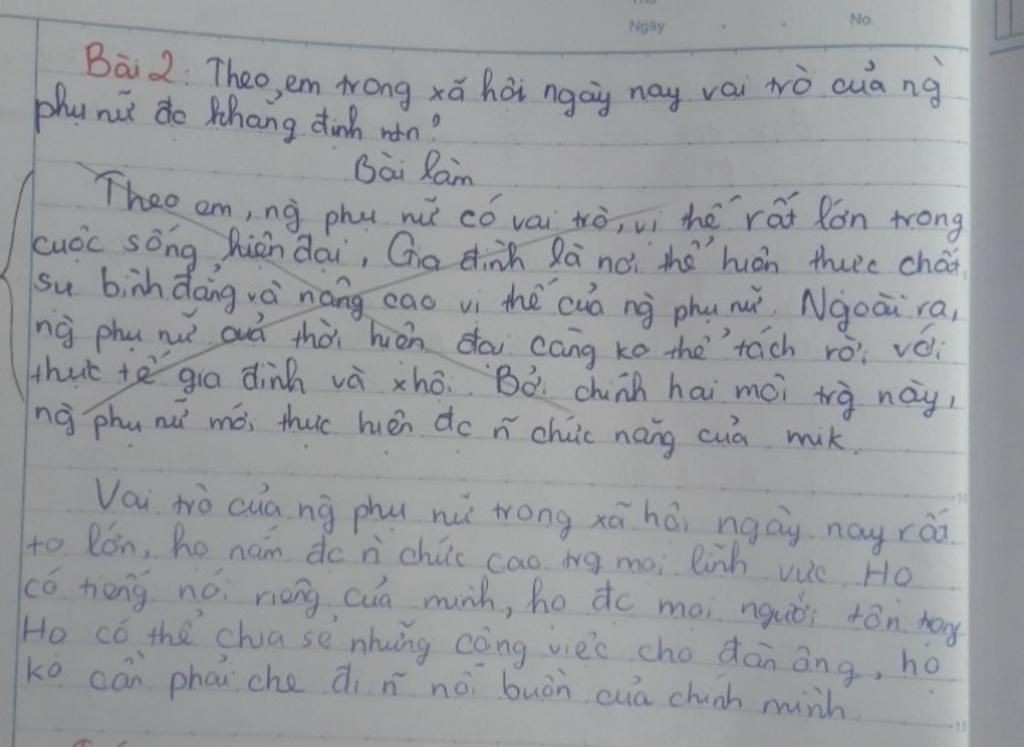 Ngày No.
Bài 2: Theo em trong xã hội ngày nay vai trò của ng̀
phụ nữ đc khẳng định ntn?
Bài làm
Theo em, ng̀ phụ nữ có vai trò, vị thế rất lớn trong
cuộc sống hiện đại, Gia đình là nơi thể hiện thực chất
sự bình đẳng và nâng cao vị thế của ng̀ phụ nữ. Ngoài ra,
ng̀ phụ nữ của thời hiện đại càng ko thể tách rời với
thực tế gia đình và xhội. Bởi chính hai môi trg̀ này,
ng̀ phụ nữ mới thực hiện đc ñ chức năng của mik.
Vai trò của ng̀ phụ nữ trong xã hội ngày nay rất
to lớn, họ nắm đc ǹ chức cao trg mọi lĩnh vực Họ
có tiếng nói riêng của mình, họ đc mọi người tôn trọng
Họ có thể chia sẻ những công việc cho đàn ông, họ
ko cần phải che đi ñ nỗi buồn của chính mình.